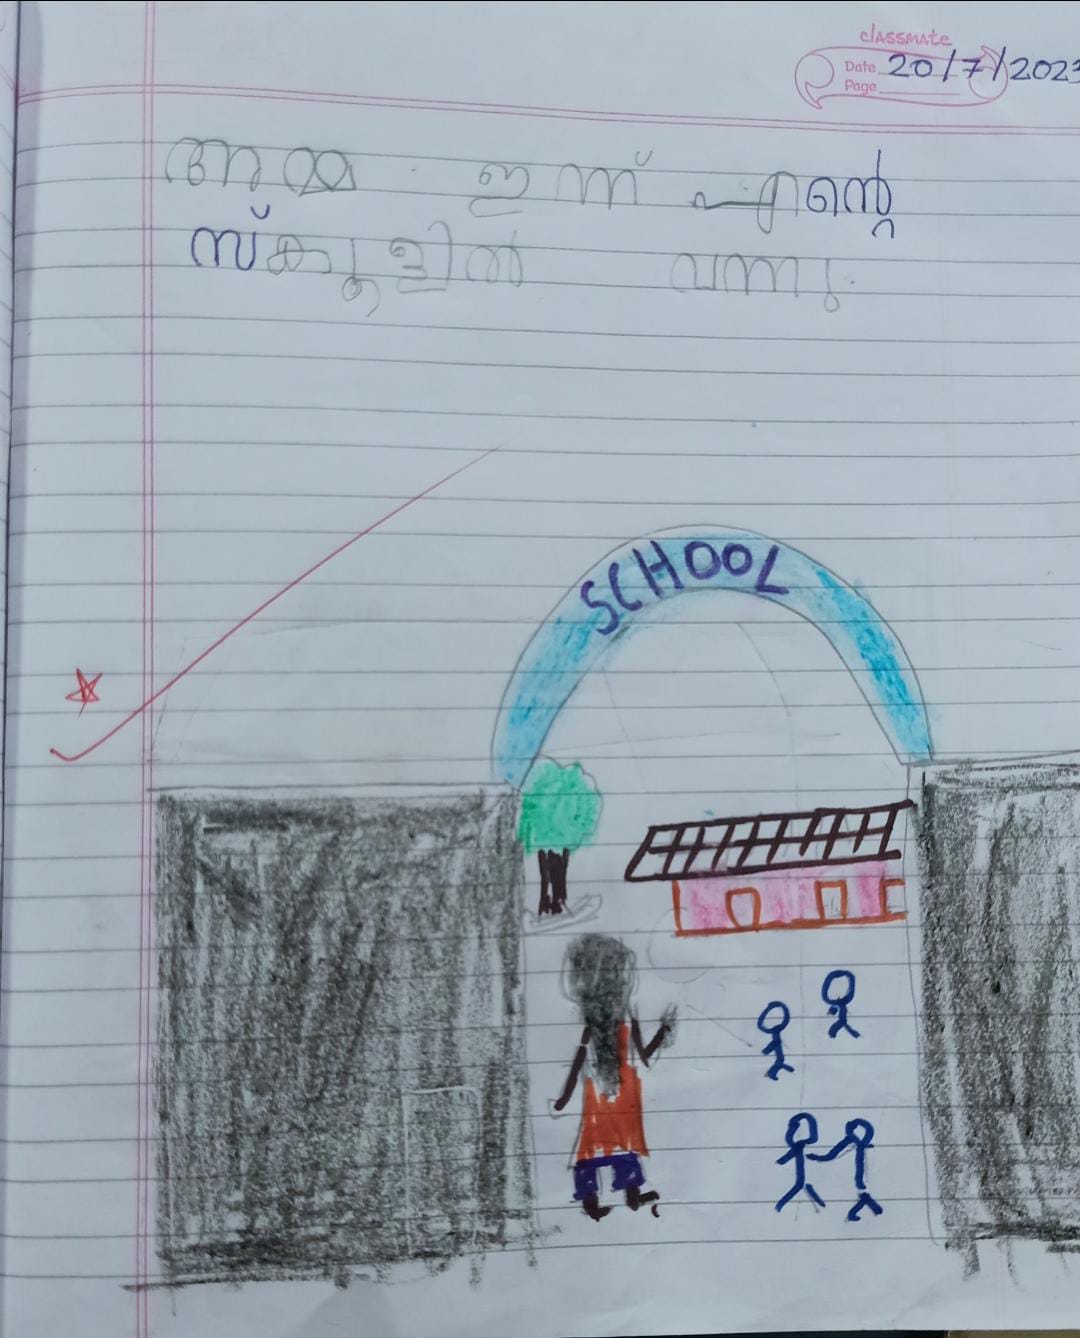 classmate
Date 20/7/2023
Page
അമ്മ ഇന്ന് എന്റെ
സ്കൂളിൽ വന്നു.
SCHOOL